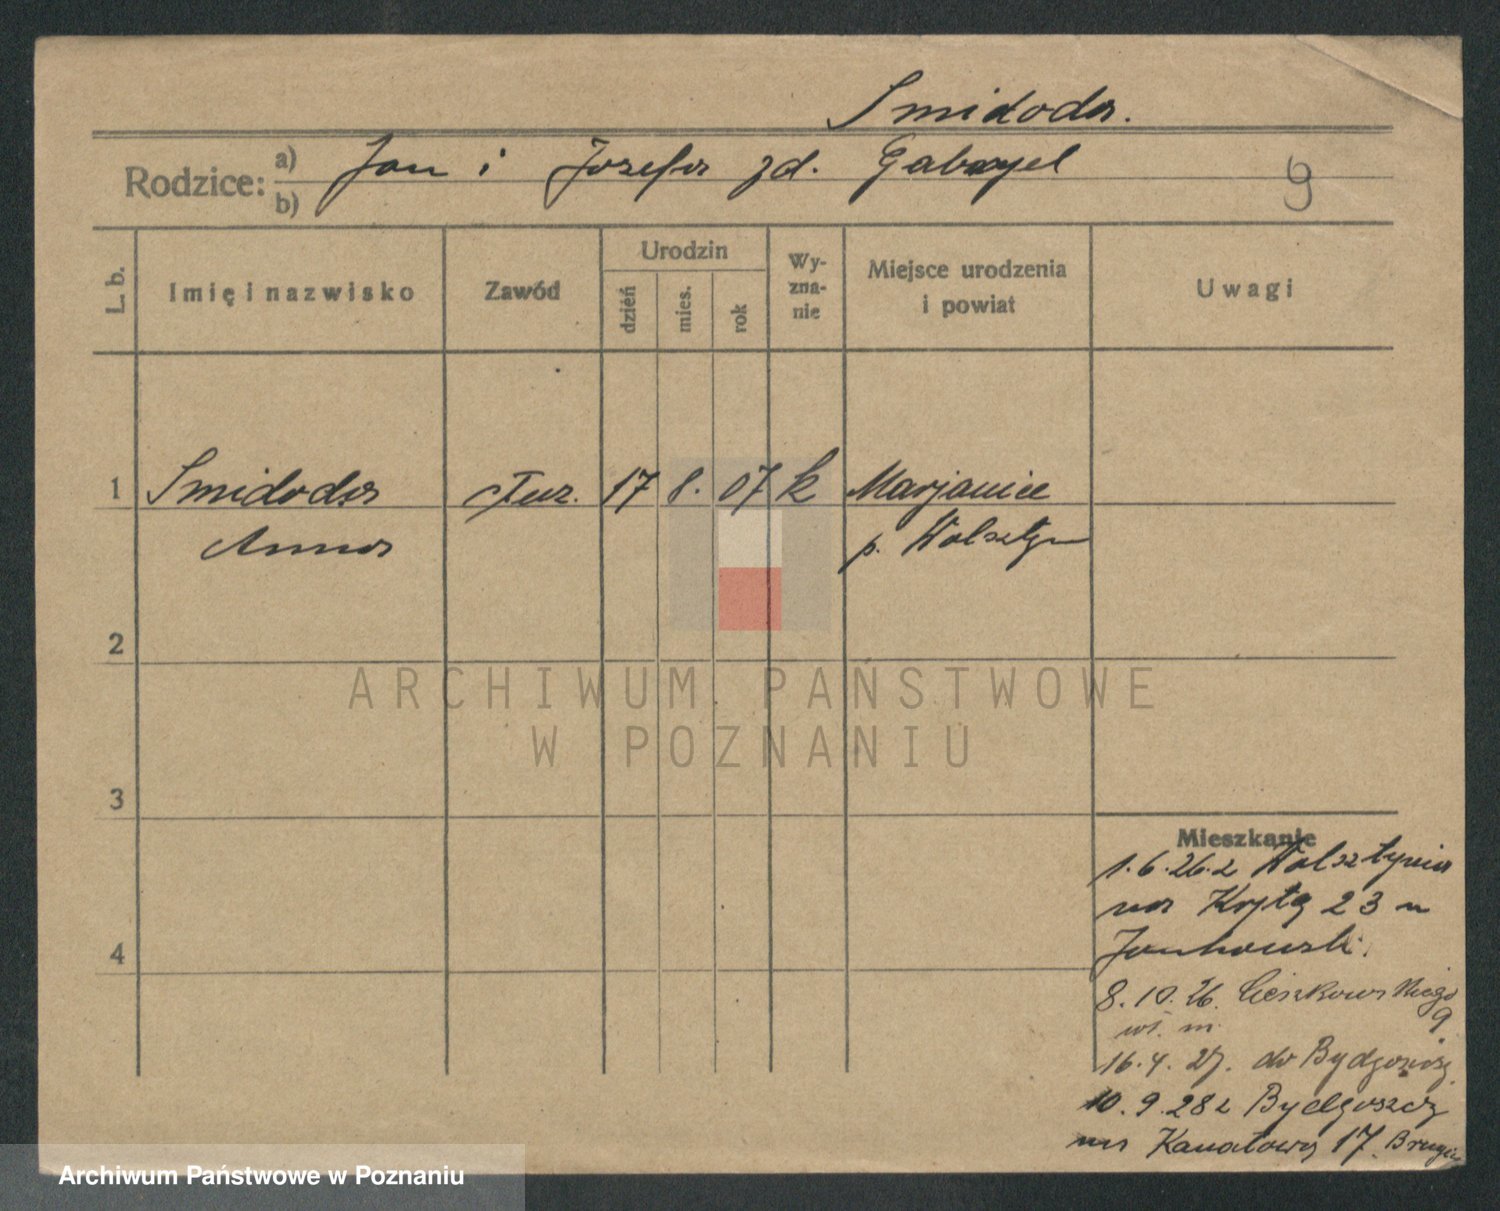 Smidoda.
Rodzice: a) b) Jan i Józefa zd. Gabryel
9
L. b. Imię i nazwisko Zawód Urodzin dzień mies. rok Wy-zna-nie Miejsce urodzenia i powiat Uwagi
1 Smidoda 17 8. 07 k Marjanice
Anna p. Wolsztyn
2
ARCHIWUM PAŃSTWOWE
W POZNANIU
3
Mieszkanie
1.6.26 z Wolsztyna
na Krytą 23 u
Jankowski.
8.10.26. Cieszkowskiego
9
wś. m.
16.4.27. do Bydgoszcz.
10.9.28 z Bydgoszczy
na Kanałową 17.
4
Archiwum Państwowe w Poznaniu